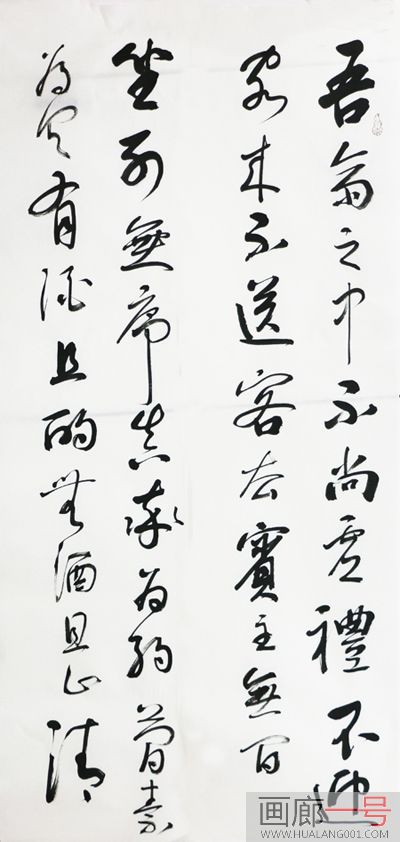 吾齋之中不尚虛禮不迎
客來不送客去賓主無間
坐列無序真率為約簡素
為具有酒且酌無酒且止清
画廊一号
WWW.HUALANG001.COM